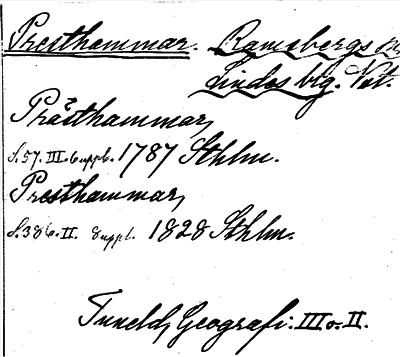 Presthammar. Ramsbergs sn
Lindes btg. Vst.
Prästhammar,
s. 57. III. 6 uppl. 1787 Sthlm.
Presthammar,
s. 386. II. 8 uppl. 1828 Sthlm.
Tuneld, Geografi. III o. II.